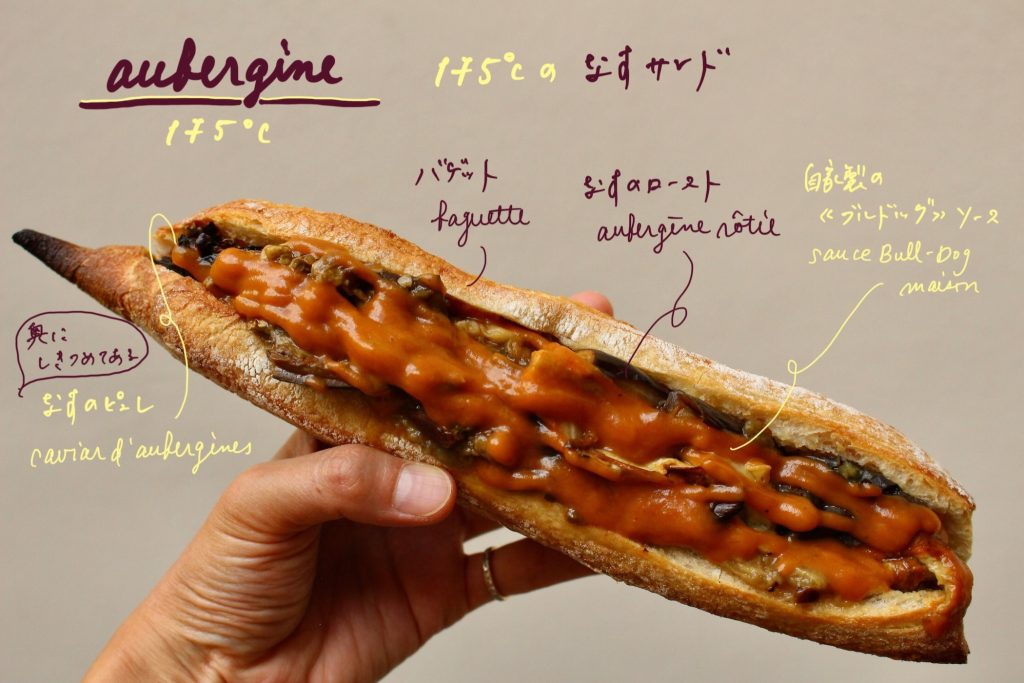 aubergine
175°C
175°Cの なすサンド
バゲット
baguette
なすのロースト
aubergine rôtie
自家製の
«ブルドッグ» ソース
sauce Bull-Dog
maison
奥に
しきつめてある
なすのピュレ
caviar d'aubergines